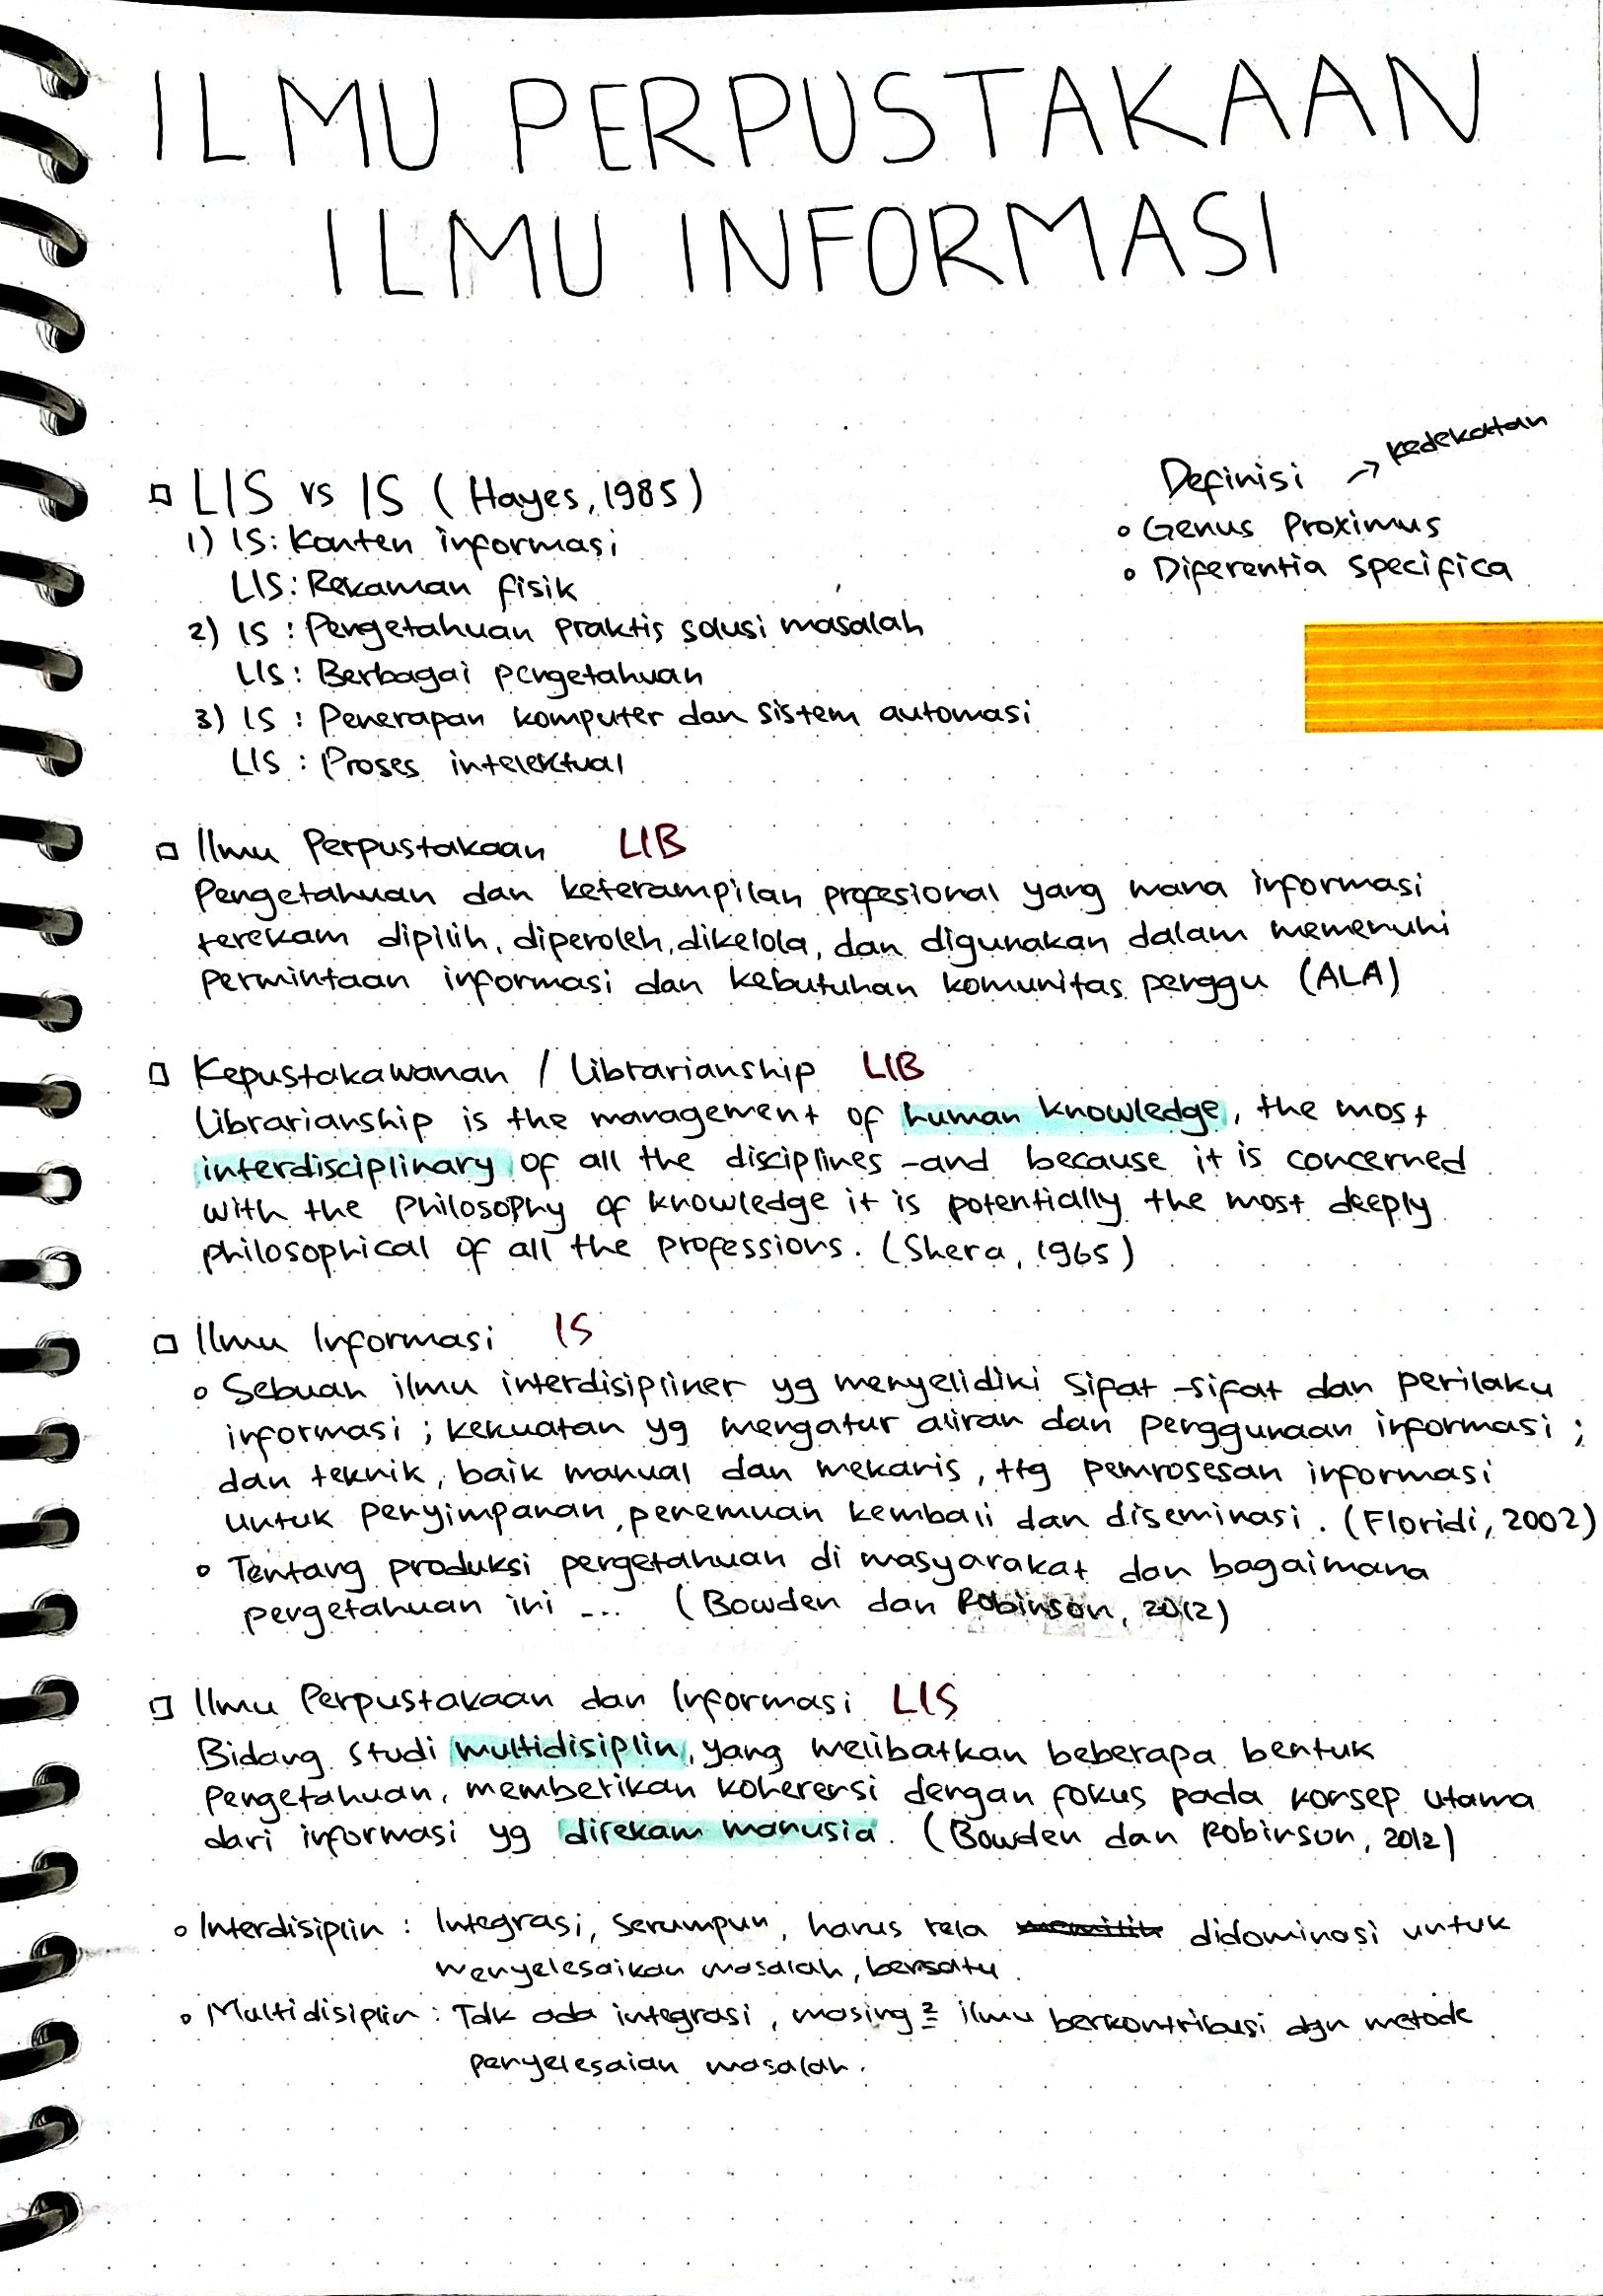 ILMU PERPUSTAKAAN
ILMU INFORMASI
LIS vs IS (Hayes, 1985)
1) IS: Konten informasi
LIS: Rekaman fisik
2) IS : Pengetahuan praktis solusi masalah
LIS: Berbagai pengetahuan
3) IS : Penerapan komputer dan sistem automasi
LIS : Proses intelektual
Definisi → kedekatan
• Genus Proximus
• Diferentia specifica
Ilmu Perpustakaan LIB
Pengetahuan dan keterampilan profesional yang mana informasi
terekam dipilih, diperoleh, dikelola, dan digunakan dalam memenuhi
permintaan informasi dan kebutuhan komunitas penggu (ALA)
Kepustakawanan / Librarianship LIB
Librarianship is the management of human knowledge, the most
interdisciplinary of all the disciplines - and because it is concerned
with the philosophy of knowledge it is potentially the most deeply
philosophical of all the professions. (Shera, 1965)
Ilmu Informasi IS
• Sebuah ilmu interdisipliner yg menyelidiki sifat-sifat dan perilaku
informasi ; kekuatan yg mengatur aliran dan penggunaan informasi ;
dan teknik, baik manual dan mekanis, ttg pemrosesan informasi
untuk penyimpanan, penemuan kembali dan diseminasi. (Floridi, 2002)
• Tentang produksi pengetahuan di masyarakat dan bagaimana
pengetahuan ini ... (Bowden dan Robinson, 2012)
Ilmu Perpustakaan dan Informasi LIS
Bidang studi multidisiplin, yang melibatkan beberapa bentuk
pengetahuan, memberikan koherensi dengan fokus pada konsep utama
dari informasi yg direkam manusia. (Bowden dan Robinson, 2012)
• Interdisiplin : Integrasi, serumpun, harus rela didominasi untuk
menyelesaikan masalah, bersatu.
• Multidisiplin : Tdk ada integrasi, masing² ilmu berkontribusi dgn metode
penyelesaian masalah.